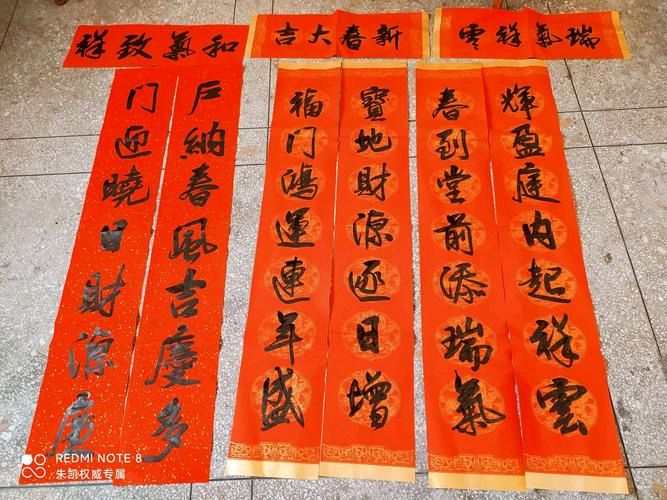 瑞氣祥雲
新春大吉
和氣致祥
輝盈庭内起祥雲
春到堂前添瑞氣
寶地財源逐日增
福門鴻運連年盛
戶納春風吉慶多
門迎曉日財源廣
REDMI NOTE 8
朱凯权威专属